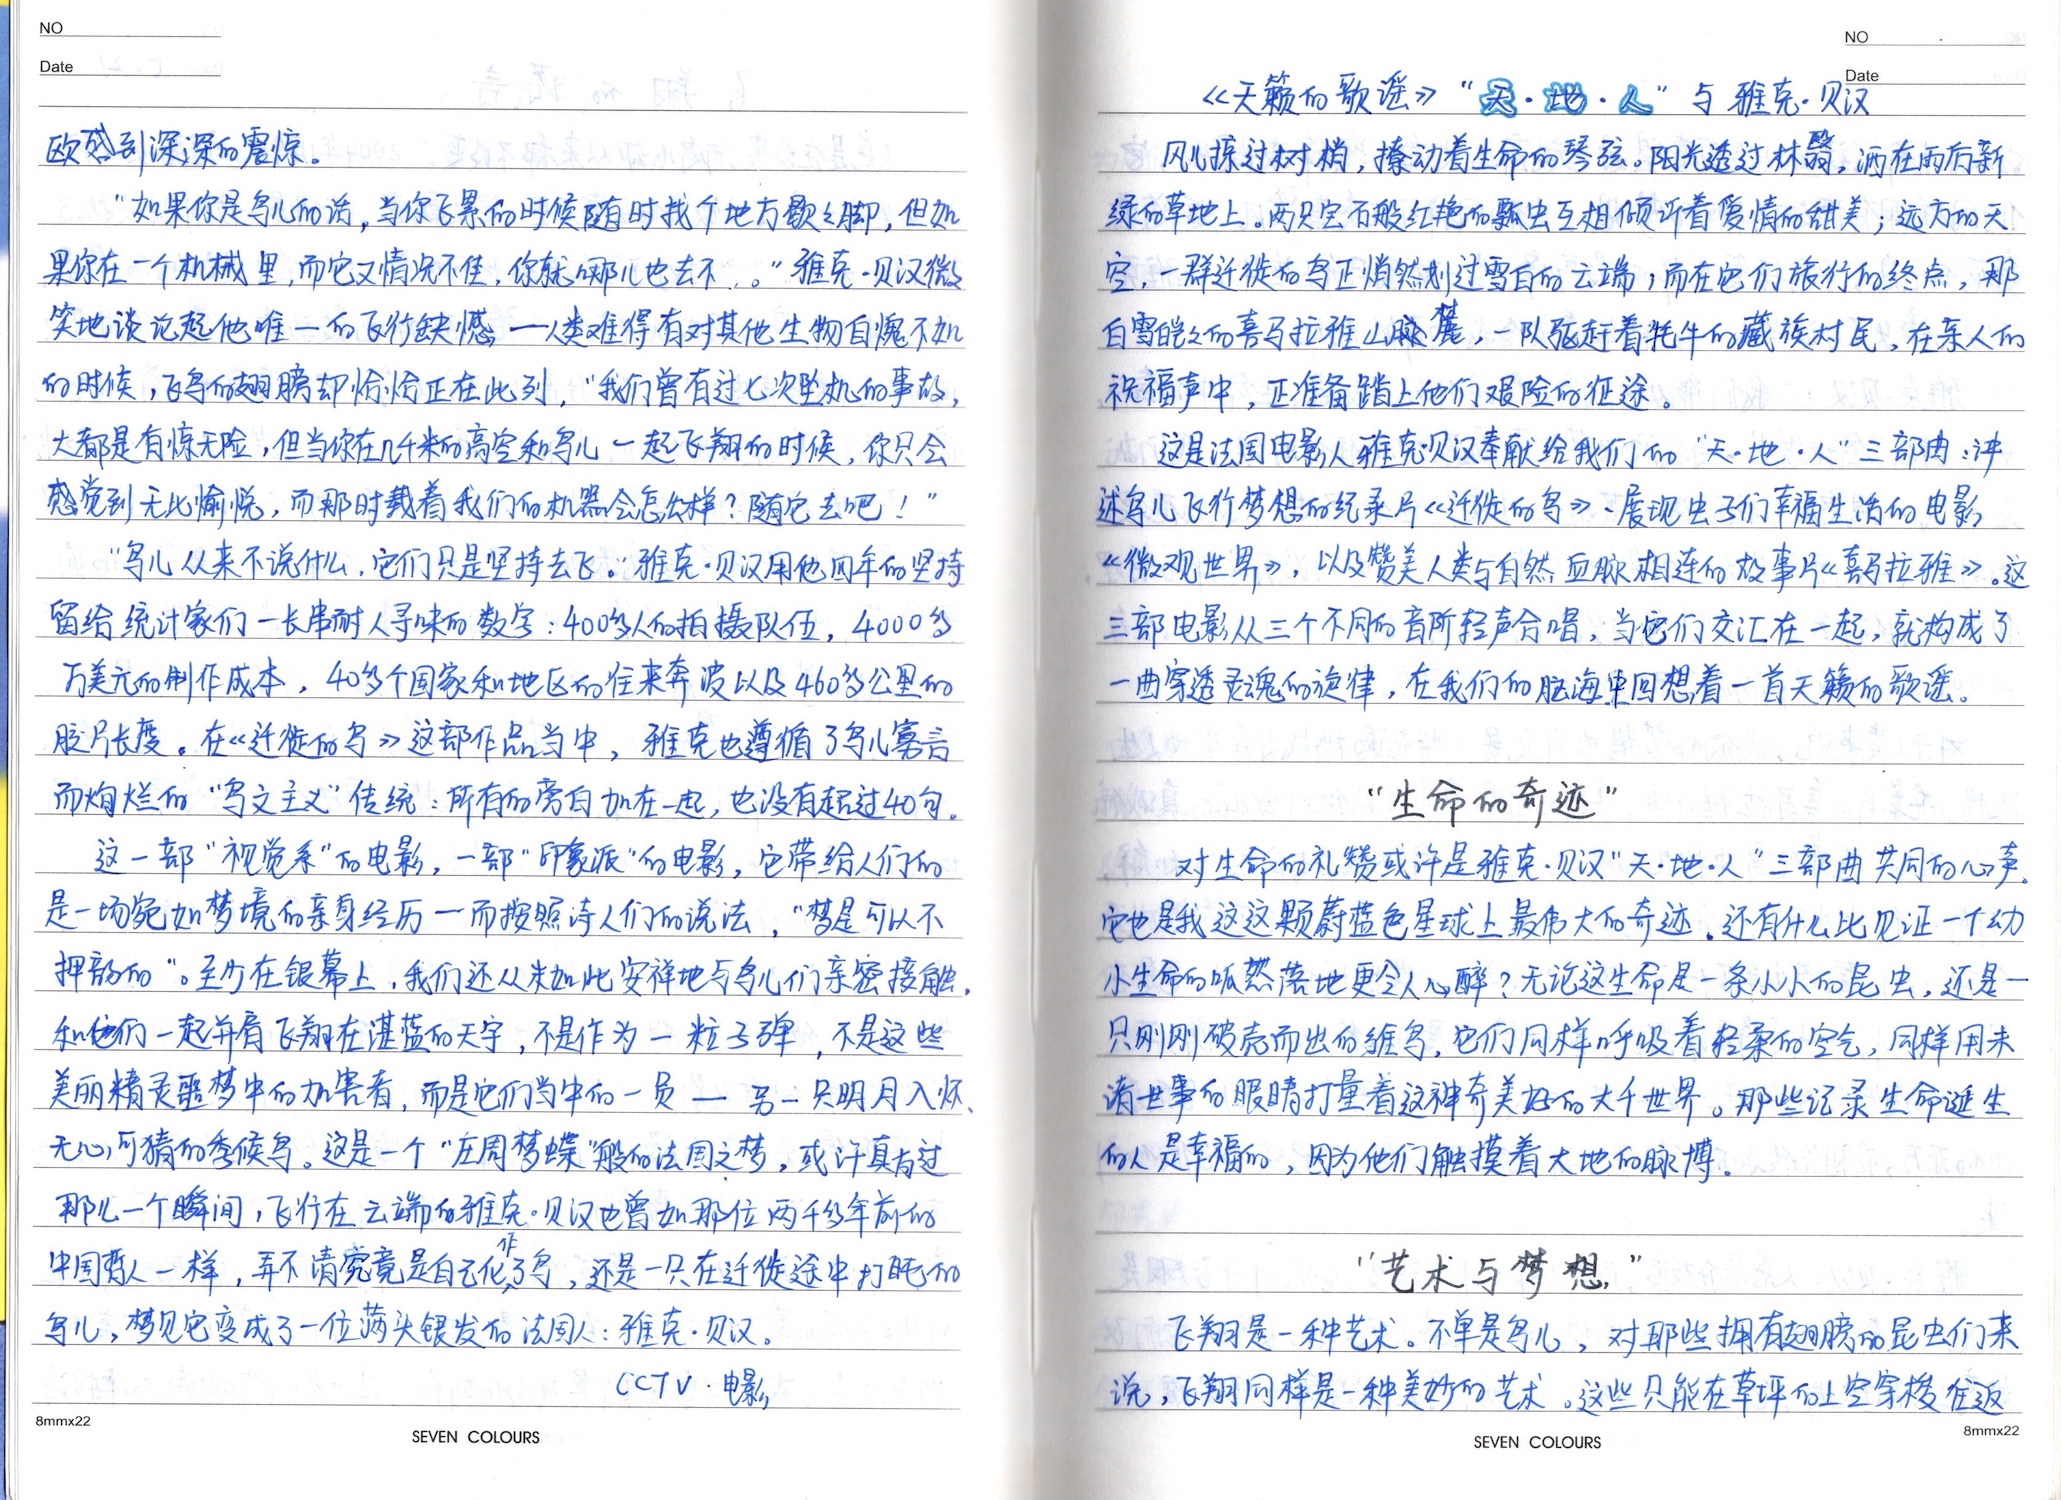 NO
Date
欧感到深深的震惊。
“如果你是鸟儿的话,当你飞累的时候随时找个地方歇歇脚,但如
果你在一个机械里,而它又情况不佳,你就哪儿也去不了。”雅克·贝汉微
笑地谈论起他唯一的飞行缺憾—人类难得有对其他生物自愧不如
的时候,飞鸟的翅膀却恰恰正在此列,“我们曾有过七次坠机的事故,
大都是有惊无险,但当你在几千米的高空和鸟儿一起飞翔的时候,你只会
感觉到无比愉悦,而那时载着我们的机器会怎么样?随它去吧!”
“鸟儿从来不说什么,它们只是坚持去飞。”雅克·贝汉用他四年的坚持
留给统计家们一长串耐人寻味的数字:400多人的拍摄队伍,4000多
万美元的制作成本,40多个国家和地区的往来奔波以及460多公里的
胶片长度。在《迁徙的鸟》这部作品当中,雅克也遵循了鸟儿寡言
而绚烂的“鸟文主义”传统:所有的旁白加在一起,也没有超过40句。
这一部“视觉系”的电影,一部“印象派”的电影,它带给人们的
是一场宛如梦境的亲身经历—而按照诗人们的说法,“梦是可以不
押韵的”。至少在银幕上,我们还从未如此安祥地与鸟儿们亲密接触,
和他们一起并肩飞翔在湛蓝的天宇,不是作为一粒子弹,不是这些
美丽精灵噩梦中的加害者,而是它们当中的一员—另一只明月入怀、
无心可猜的季候鸟。这是一个“庄周梦蝶”般的法国之梦,或许真有过
那么一个瞬间,飞行在云端的雅克·贝汉也曾如那位两千多年前的
中国哲人一样,弄不清究竟是自己化作了鸟,还是一只在迁徙途中打盹的
鸟儿,梦见它变成了一位满头银发的法国人:雅克·贝汉。
CCTV·电影
8mmx22
SEVEN COLOURS
NO
Date
《天籁的歌谣》“天·地·人”与雅克·贝汉
风儿掠过树梢,撩动着生命的琴弦。阳光透过林翳,洒在雨后新
绿的草地上。两只宝石般红艳的瓢虫互相倾诉着爱情的甜美;远方的天
空,一群迁徙的鸟正悄然划过雪白的云端;而在它们旅行的终点,那
白雪皑皑的喜马拉雅山麓,一队驱赶着牦牛的藏族村民,在亲人的
祝福声中,正准备踏上他们艰险的征途。
这是法国电影人雅克·贝汉奉献给我们的“天·地·人”三部曲:讲
述鸟儿飞行梦想的纪录片《迁徙的鸟》、展现虫子们幸福生活的电影
《微观世界》,以及赞美人类与自然血脉相连的故事片《喜马拉雅》。这
三部电影从三个不同的音阶轻声合唱,当它们交汇在一起,就构成了
一曲穿透灵魂的旋律,在我们的脑海里回想着一首天籁的歌谣。
“生命的奇迹”
对生命的礼赞或许是雅克·贝汉“天·地·人”三部曲共同的心声。
它也是我这这颗蔚蓝色星球上最伟大的奇迹。还有什么比见证一个幼
小生命的呱然落地更令人心醉?无论这生命是一条小小的昆虫,还是一
只刚刚破壳而出的雏鸟,它们同样呼吸着轻柔的空气,同样用未
谙世事的眼睛打量着这神奇美好的大千世界。那些记录生命诞生
的人是幸福的,因为他们触摸着大地的脉搏。
“艺术与梦想”
飞翔是一种艺术。不单是鸟儿,对那些拥有翅膀的昆虫们来
说,飞翔同样是一种美妙的艺术。这些只能在草坪的上空穿梭往返
8mmx22
SEVEN COLOURS